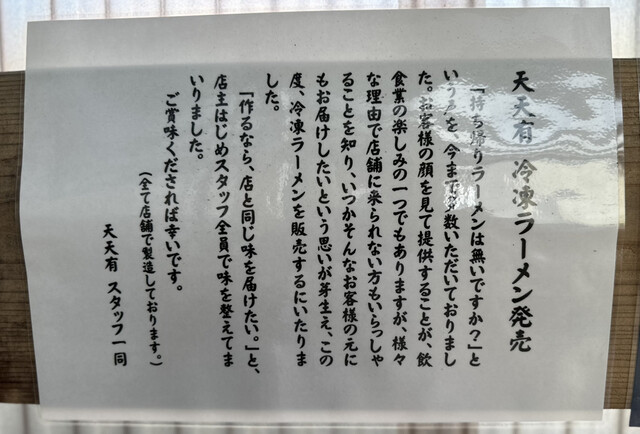 天天有 冷凍ラーメン発売
「持ち帰りラーメンは無いですか？」と
いう声を、今まで多数いただいておりまし
た。お客様の顔を見て提供することが、飲
食業の楽しみの一つでもありますが、様々
な理由で店舗に来られない方もいらっしゃ
ることを知り、いつかそんなお客様の元に
もお届けしたいという思いが芽生え、この
度、冷凍ラーメンを販売するにいたりま
した。
「作るなら、店と同じ味を届けたい。」と、
店主はじめスタッフ全員で味を整えてま
いりました。
ご賞味くだされば幸いです。
（全て店舗で製造しております。）
天天有 スタッフ一同